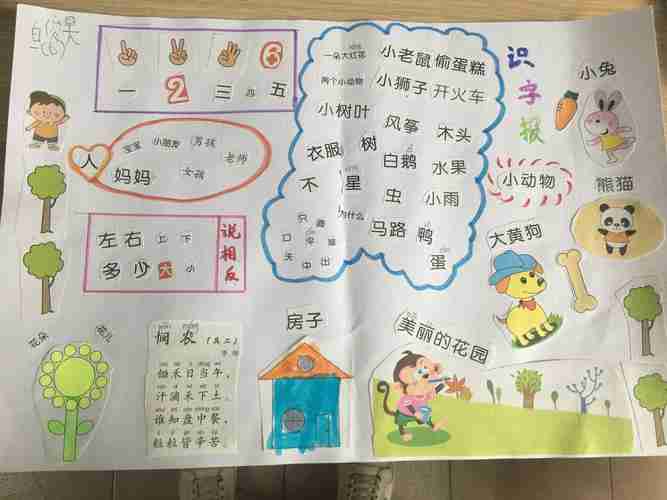 6
一 2 三 四 五
人
宝宝 小朋友 男孩
妈妈 女孩 老师
左右 上下
多少 大 小
说相反
一朵大红花
两个小动物
小老鼠 偷蛋糕
小狮子 开火车
小树叶
风筝 木头
衣服 树
白鹅 水果
不 星
虫 小雨
为什么
马路 鸭
蛋
识字报
小兔
小动物
熊猫
大黄狗
花朵 花儿
悯农(其二)
李绅
锄禾日当午，
汗滴禾下土。
谁知盘中餐，
粒粒皆辛苦。
房子
美丽的花园